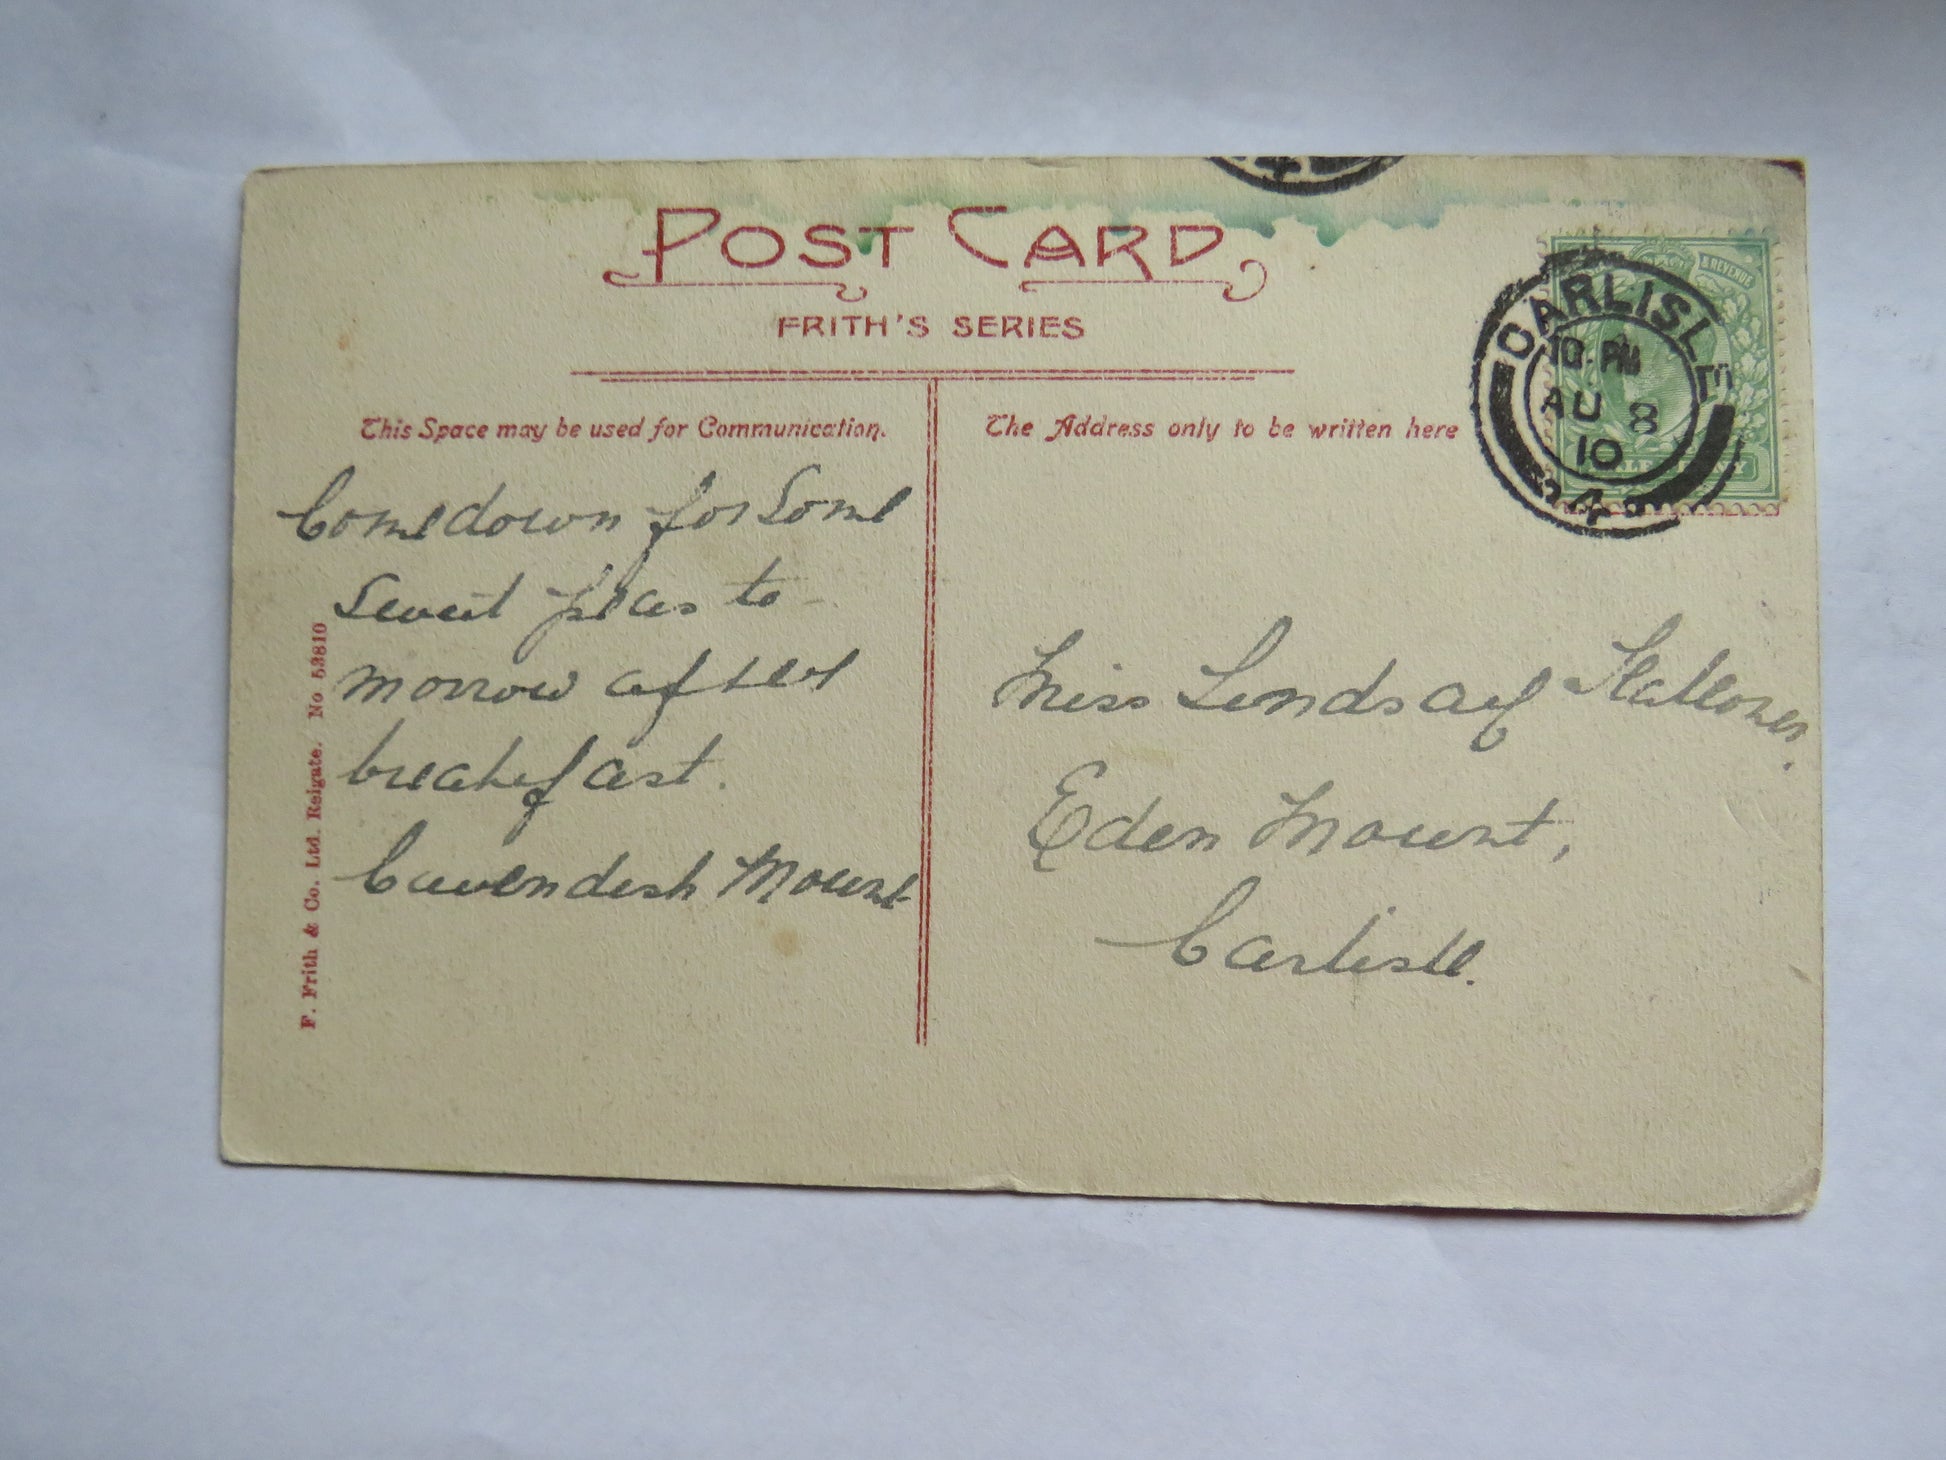 POST CARD
FRITH'S SERIES
This Space may be used for Communication.
The Address only to be written here
& REVENUE
CARLISLE
10. PM
AU 8
10
4
Come down for some
sweet peas to
morrow after
breakfast.
Cavendish Mount
Miss Lindsay
Eden Mount,
Carlisle.
F. Frith & Co. Ltd. Reigate. No 53810